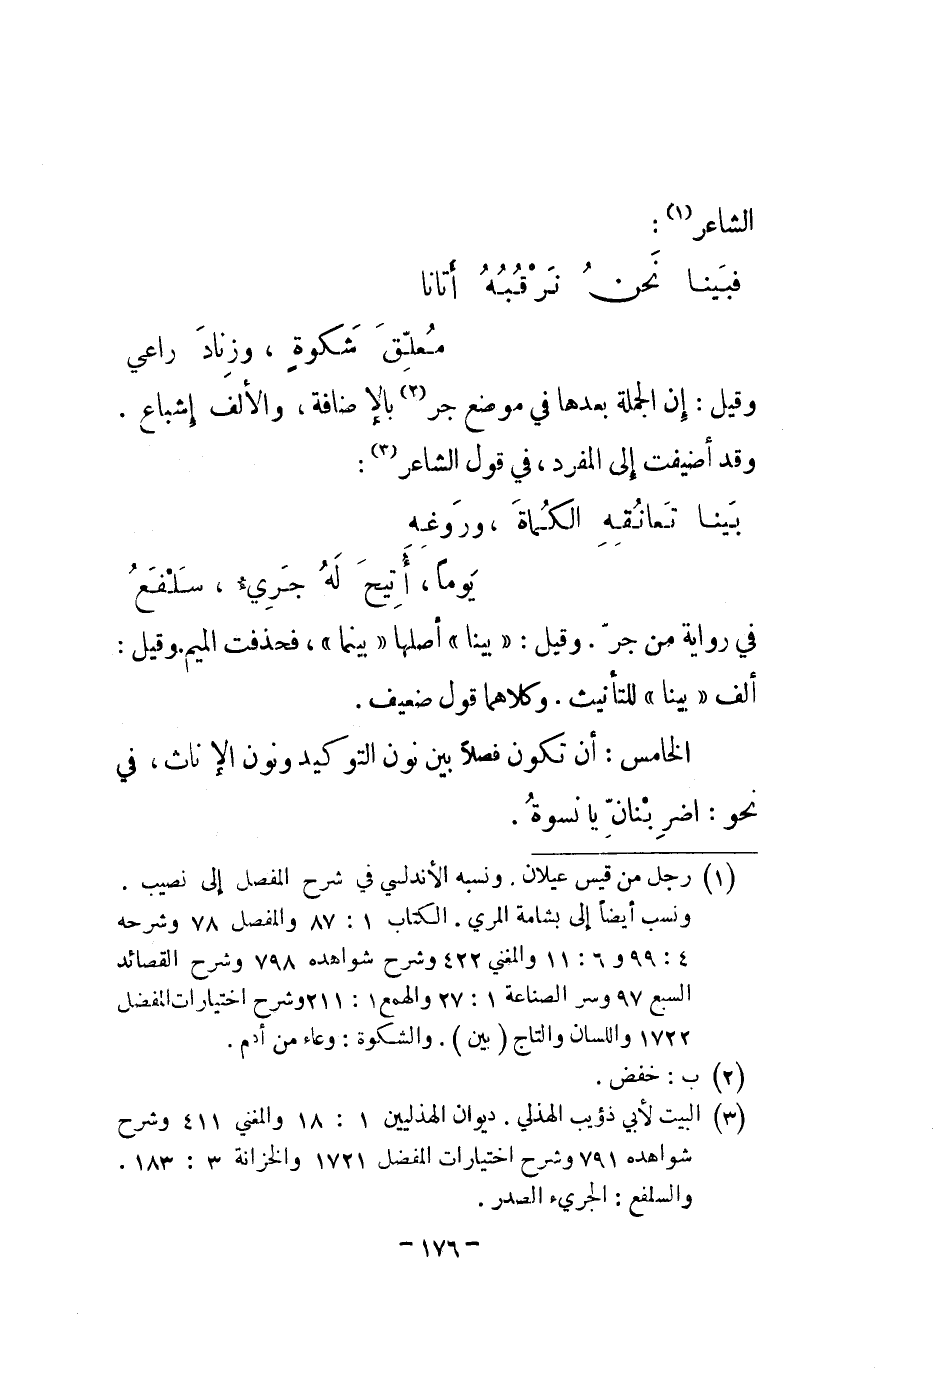 الشاعر(١) :
فبَينا نَحنُ نَرْقُبُهُ أتانا
مُعلِّقَ شَكوةٍ ، وزِنادَ راعي
وقيل : إن الجملة بعدها في موضع جر(٢) بالإضافة ، والألف إشباع .
وقد أضيفت إلى المفرد ، في قول الشاعر(٣) :
بَينا تَعانُقِهِ الكُماةَ ، ورَوغِهِ
يَوماً ، أُتِيحَ لَهُ جَرِيءٌ ، سَلْفَعُ
في رواية من جرّ . وقيل : « بينا » أصلها « بينما » ، فحذفت الميم . وقيل :
ألف « بينا » للتأنيث . وكلاهما قول ضعيف .
الخامس : أن تكون فصلاً بين نون التوكيد ونون الإناث ، في
نحو : اضرِبْنانِّ يا نسوةُ .
(١) رجل من قيس عيلان . ونسبه الأندلسي في شرح المفصل إلى نصيب .
ونسب أيضاً إلى بشامة المري . الكتاب ١ : ٨٧ والمفصل ٧٨ وشرحه
٤ : ٩٩ و ٦ : ١١ والمغني ٤٢٢ وشرح شواهده ٧٩٨ وشرح القصائد
السبع ٩٧ وسر الصناعة ١ : ٢٧ والهمع ١ : ٢١١ وشرح اختيارات المفضل
١٧٢٢ واللسان والتاج ( بين ) . والشكوة : وعاء من أدم .
(٢) ب : خفض .
(٣) البيت لأبي ذؤيب الهذلي . ديوان الهذليين ١ : ١٨ والمغني ٤١١ وشرح
شواهده ٧٩١ وشرح اختيارات المفضل ١٧٢١ والخزانة ٣ : ١٨٣ .
والسلفع : الجريء الصدر .
- ١٧٦ -